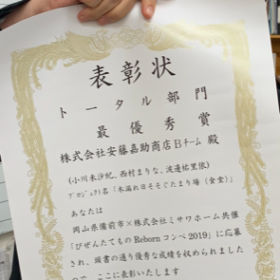 表彰状
トータル部門
最優秀賞
株式会社安藤嘉助商店Bチーム 殿
(小川未沙紀、西村まりな、渡邊祐里依)
プロジェクト名「木漏れ日そそぐたまり場(食堂)」
あなたは
岡山県備前市×株式会社ミサワホーム共催
「びぜんたてものRebornコンペ2019」に応募
され、頭書の通り優秀な成績を収められました
ので、ここに表彰いたします